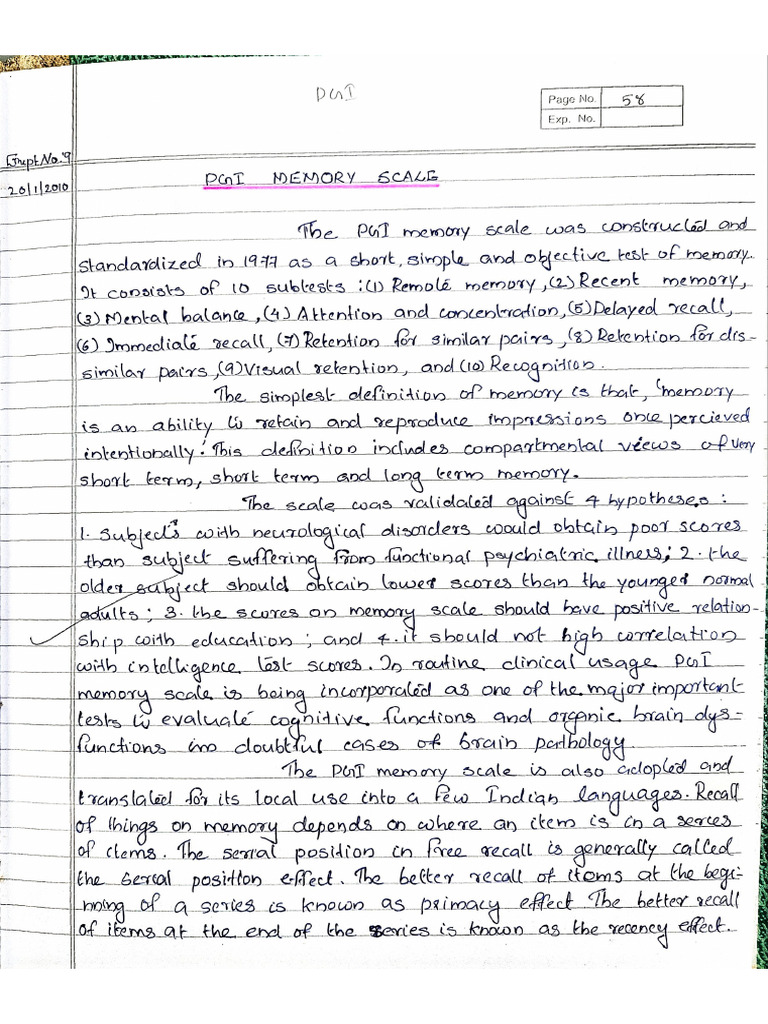 PGI
Page No. 58
Exp. No.
Exript No. 9
20/1/2010
PGI MEMORY SCALE
The PGI memory scale was constructed and
standardized in 1977 as a short, simple and objective test of memory.
It consists of 10 subtests : (1) Remote memory, (2) Recent memory,
(3) Mental balance, (4) Attention and concentration, (5) Delayed recall,
(6) Immediate recall, (7) Retention for similar pairs, (8) Retention for dis-
similar pairs, (9) Visual retention, and (10) Recognition.
The simplest definition of memory is that, 'memory
is an ability to retain and reproduce impressions once percieved
intentionally'. This definition includes compartmental views of very
short term, short term and long term memory.
The scale was validated against 4 hypotheses :
1. Subject's with neurological disorders would obtain poor scores
than subject suffering from functional psychiatric illness; 2. the
older subject should obtain lower scores than the younger normal
adults; 3. the scores on memory scale should have positive relation-
ship with education; and 4. it should not high correlation
with intelligence test scores. In routine clinical usage PGI
memory scale is being incorporated as one of the major important
tests to evaluate cognitive functions and organic brain dys-
functions in doubtful cases of brain pathology.
The PGI memory scale is also adopted and
translated for its local use into a few Indian languages. Recall
of things on memory depends on where an item is in a series
of items. The serial position in free recall is generally called
the serial position effect. The better recall of items at the begi-
nning of a series is known as primacy effect. The better recall
of items at the end of the series is known as the recency effect.